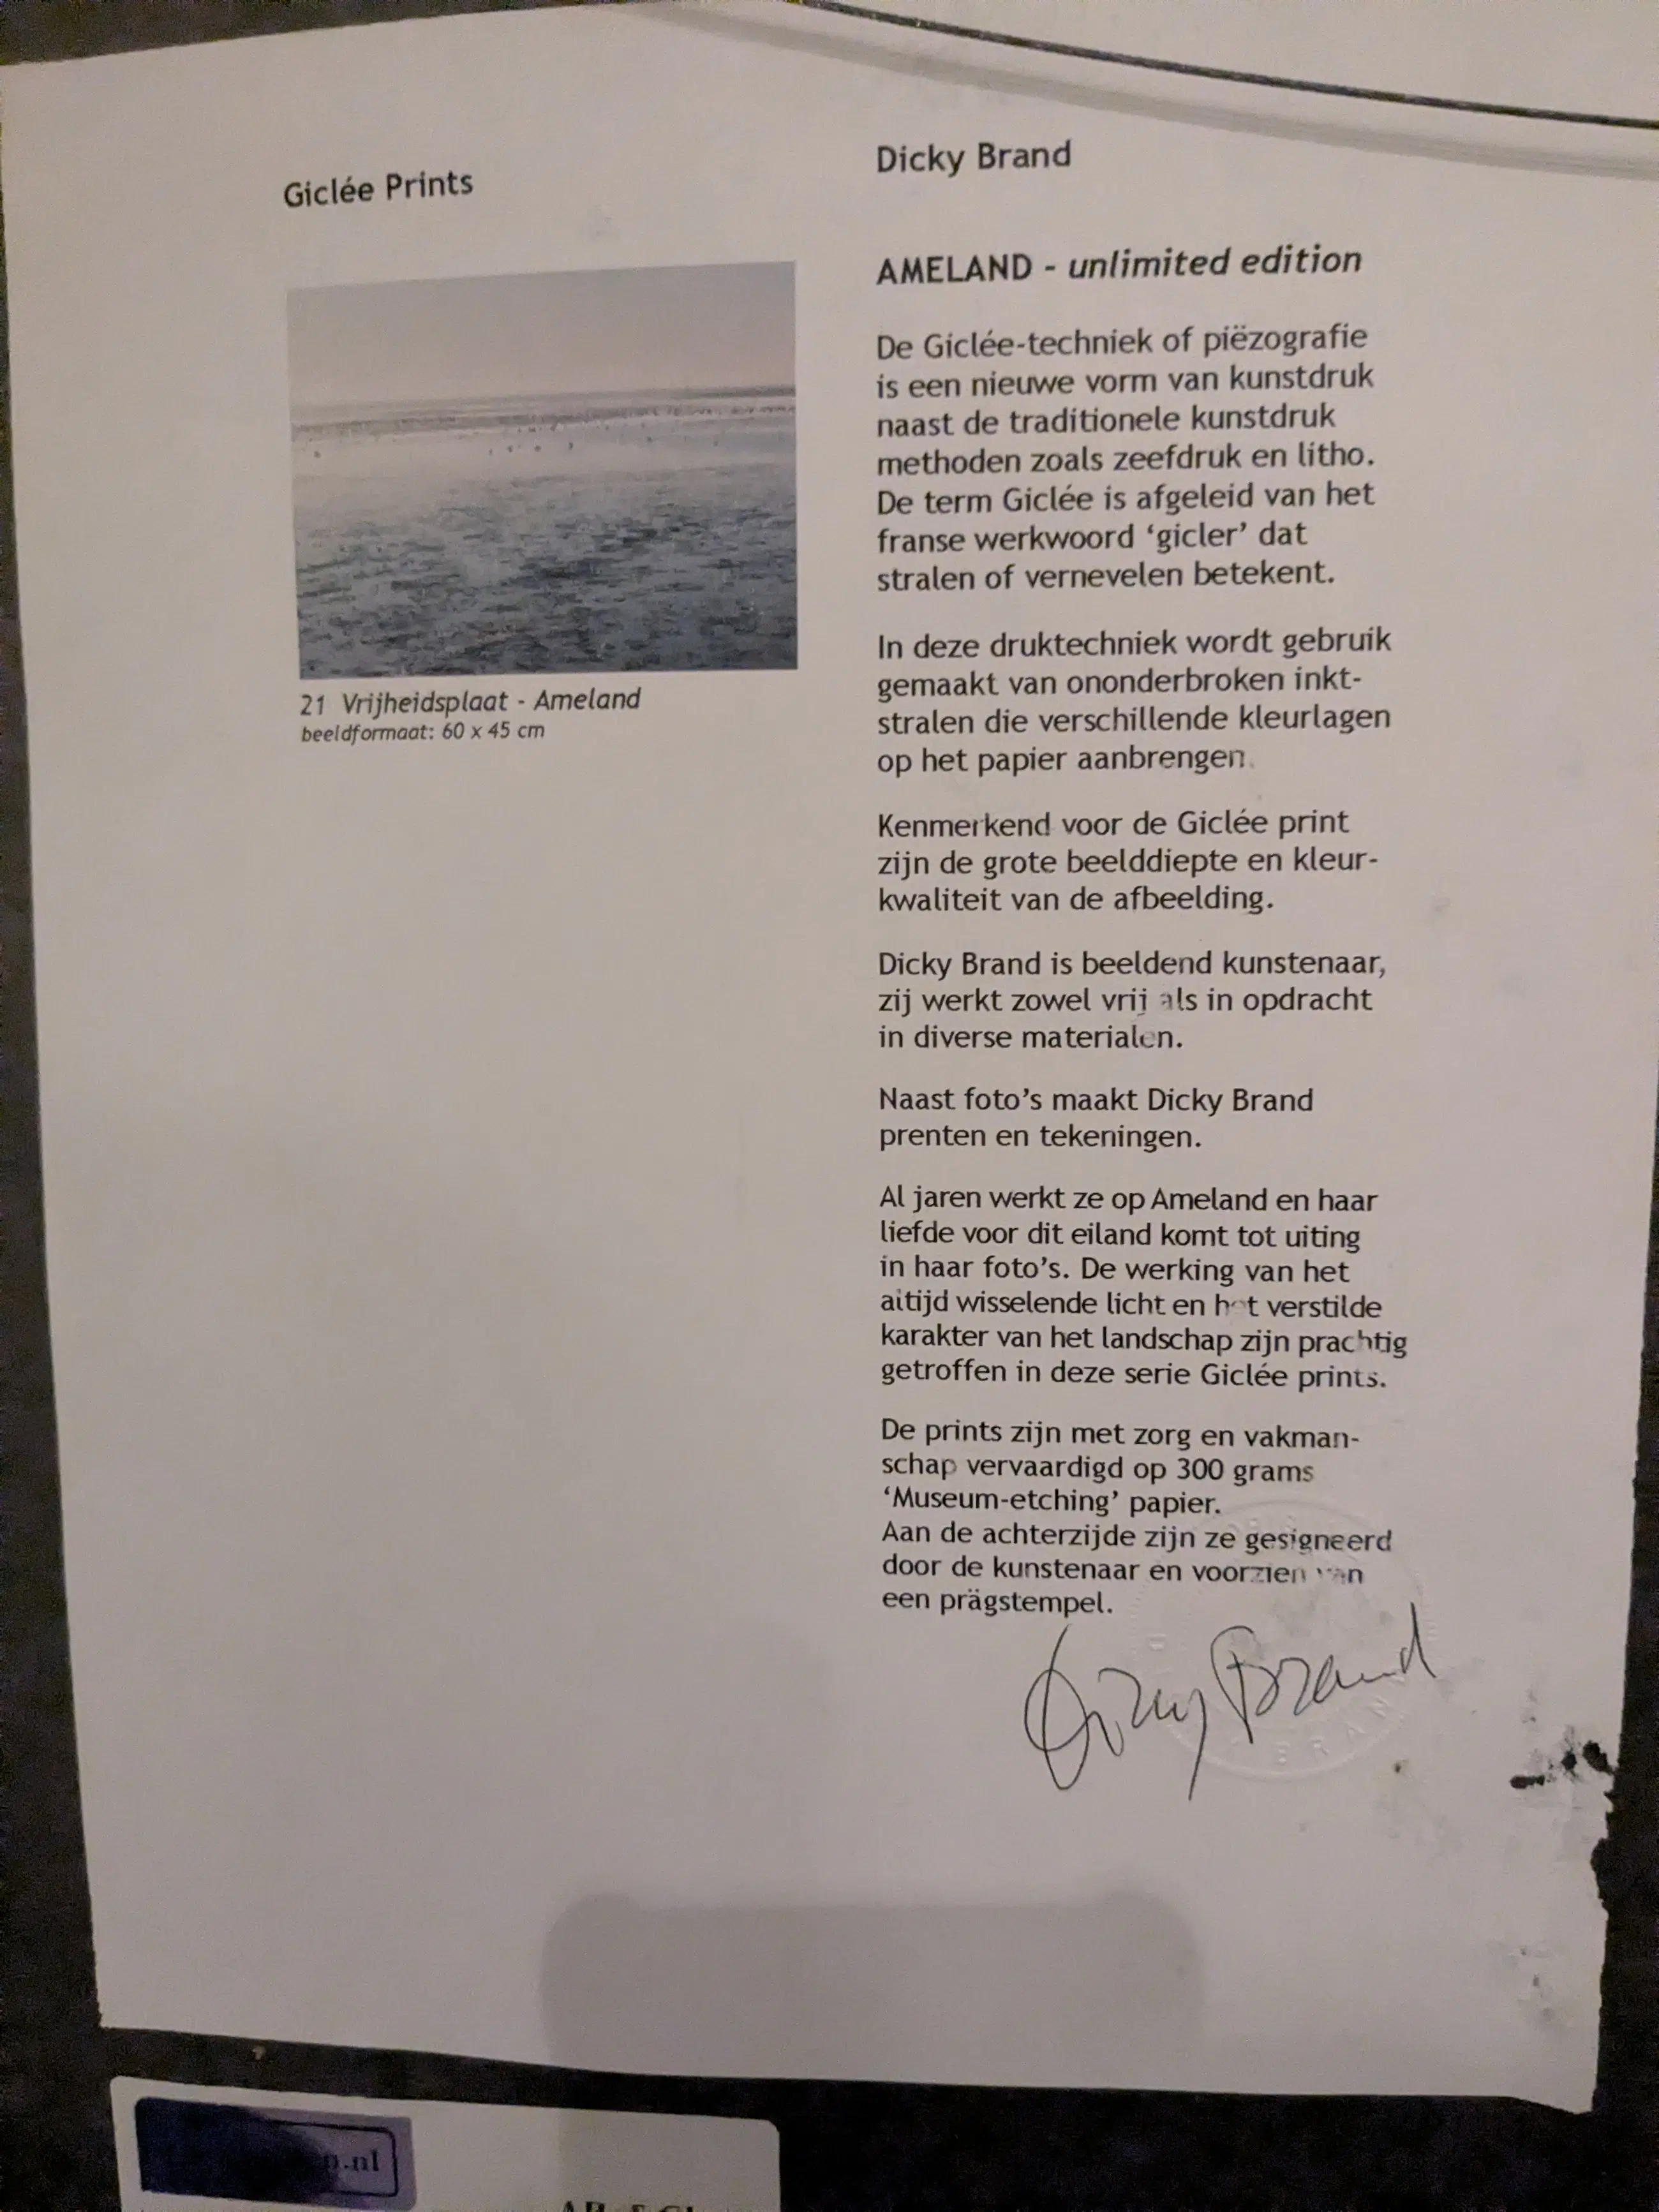 Giclée Prints
21 Vrijheidsplaat - Ameland
beeldformaat: 60 x 45 cm
Dicky Brand
AMELAND - unlimited edition
De Giclée-techniek of piëzografie
is een nieuwe vorm van kunstdruk
naast de traditionele kunstdruk
methoden zoals zeefdruk en litho.
De term Giclée is afgeleid van het
franse werkwoord ‘gicler’ dat
stralen of vernevelen betekent.
In deze druktechniek wordt gebruik
gemaakt van ononderbroken inkt-
stralen die verschillende kleurlagen
op het papier aanbrengen.
Kenmerkend voor de Giclée print
zijn de grote beelddiepte en kleur-
kwaliteit van de afbeelding.
Dicky Brand is beeldend kunstenaar,
zij werkt zowel vrij als in opdracht
in diverse materialen.
Naast foto’s maakt Dicky Brand
prenten en tekeningen.
Al jaren werkt ze op Ameland en haar
liefde voor dit eiland komt tot uiting
in haar foto’s. De werking van het
altijd wisselende licht en het verstilde
karakter van het landschap zijn prachtig
getroffen in deze serie Giclée prints.
De prints zijn met zorg en vakman-
schap vervaardigd op 300 grams
‘Museum-etching’ papier.
Aan de achterzijde zijn ze gesigneerd
door de kunstenaar en voorzien van
een prägstempel.
Dicky Brand
.nl